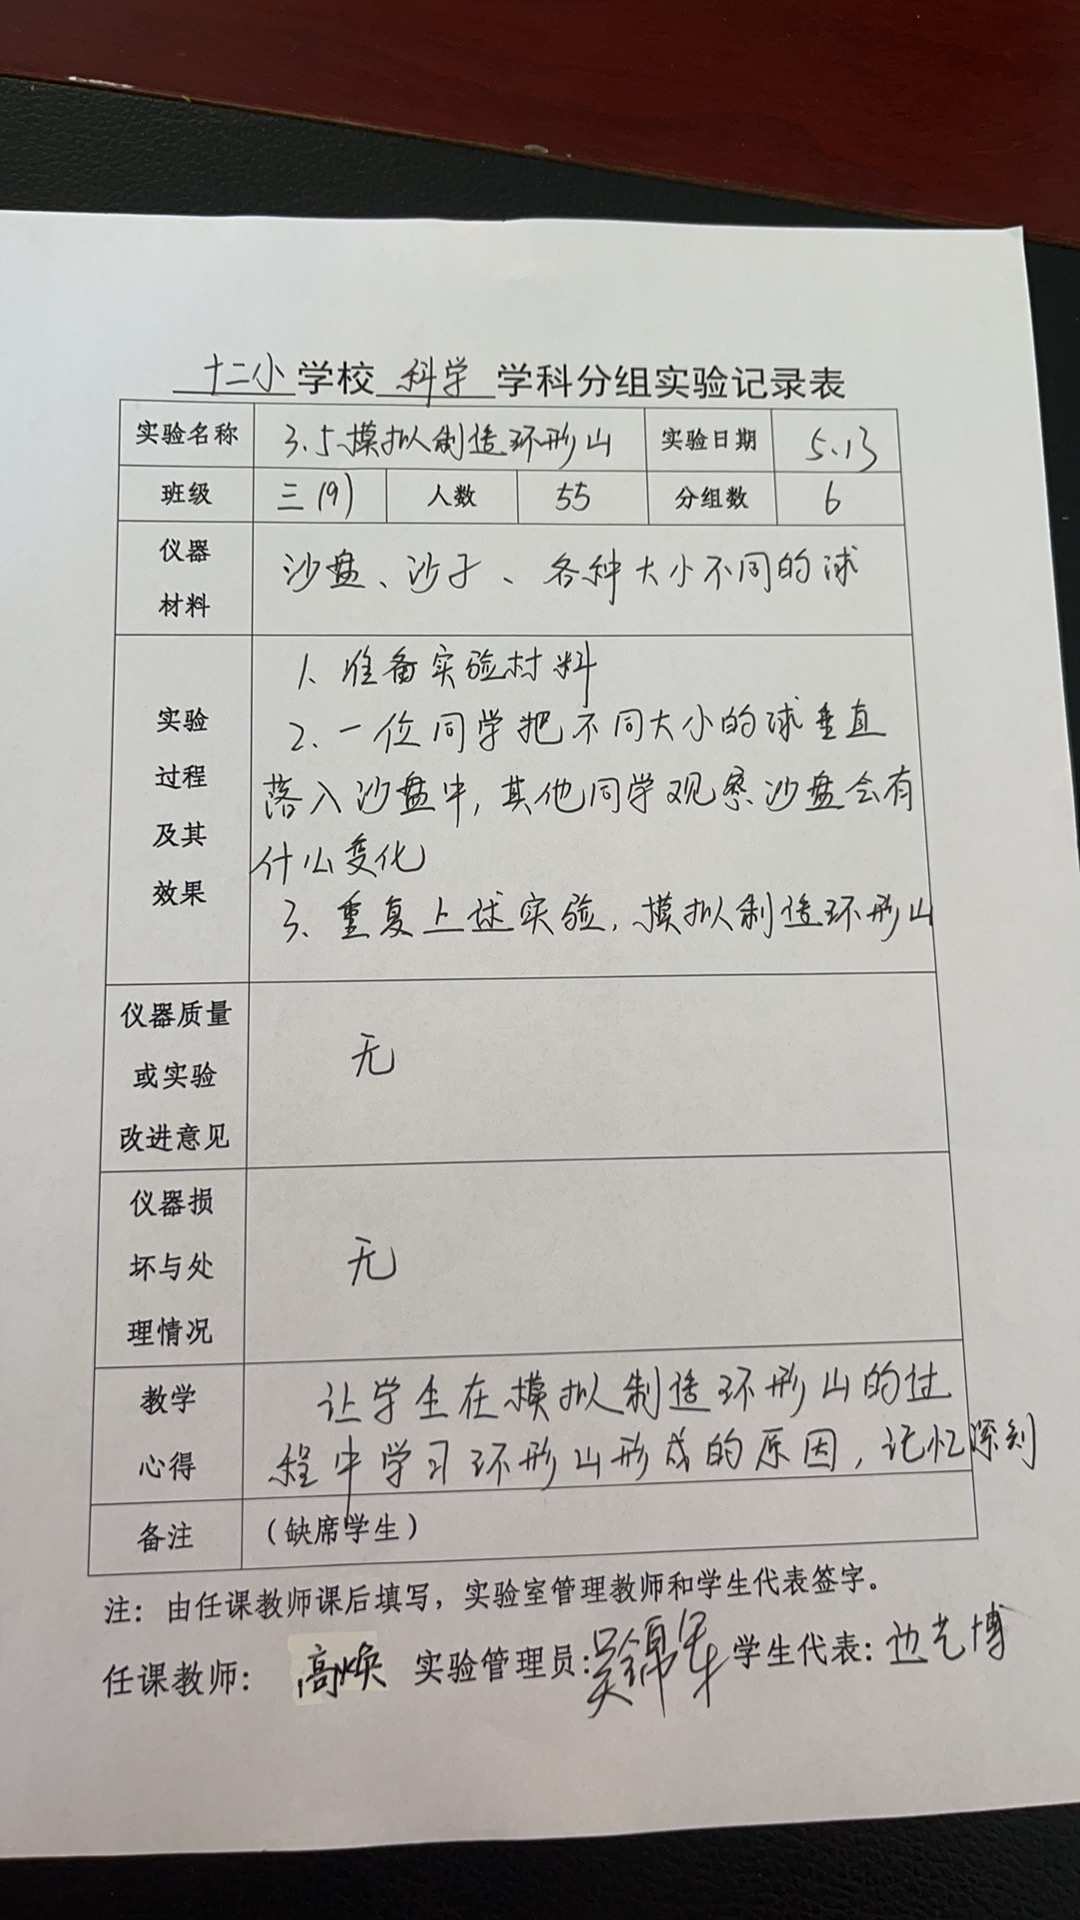 十二小学校科学学科分组实验记录表
实验名称 3.5、模拟制造环形山 实验日期 5.13
班级 三(9) 人数 55 分组数 6
仪器
材料
沙盘、沙子、各种大小不同的球
实验
过程
及其
效果
1、准备实验材料
2、一位同学把不同大小的球垂直
落入沙盘中,其他同学观察沙盘会有
什么变化
3、重复上述实验,模拟制造环形山
仪器质量
或实验
改进意见
无
仪器损
坏与处
理情况
无
教学
心得
让学生在模拟制造环形山的过
程中学习环形山形成的原因,记忆深刻
备注 (缺席学生)
注:由任课教师课后填写,实验室管理教师和学生代表签字。
任课教师: 高焕 实验管理员:吴锦军 学生代表:边艺博